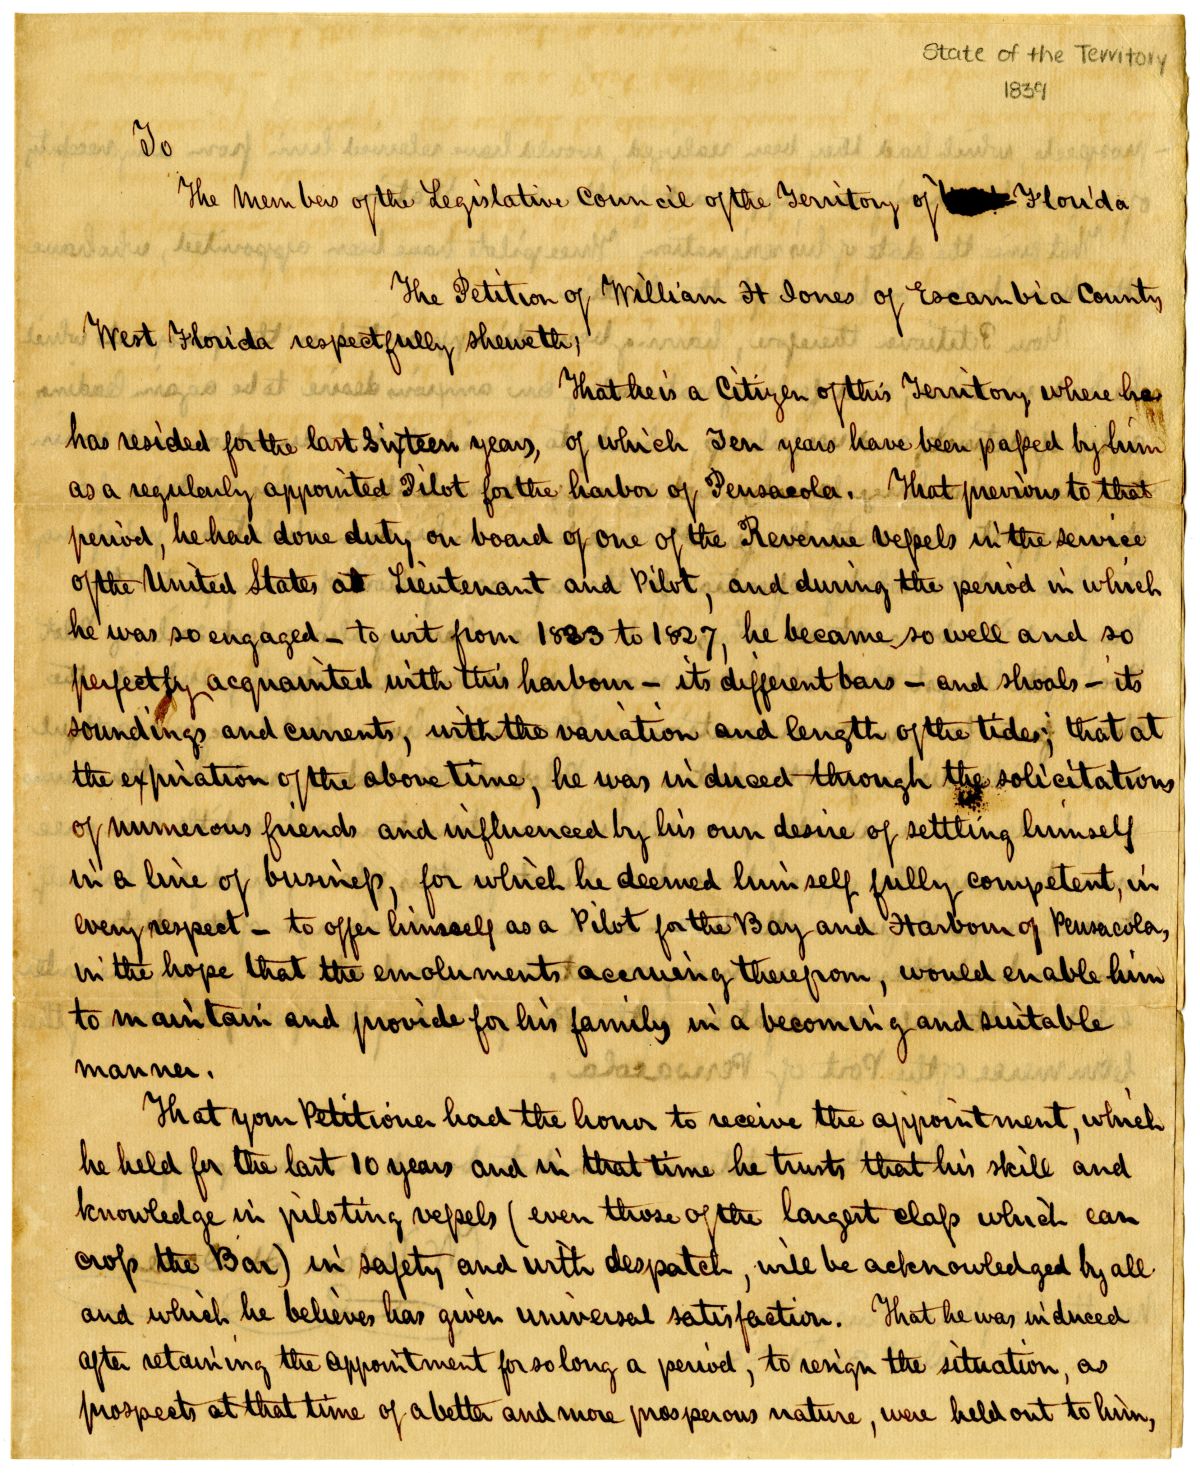 State of the Territory
1839
To
The Members of the Legislative Council of the Territory of Florida
The Petition of William H Jones of Escambia County
West Florida respectfully sheweth;
That he is a Citizen of this Territory where he
has resided for the last Sixteen years, of which Ten years have been passed by him
as a regularly appointed Pilot for the harbor of Pensacola. That previous to that
period, he had done duty on board of one of the Revenue vessels in the service
of the United States as Lieutenant and Pilot, and during the period in which
he was so engaged – to wit from 1823 to 1827, he became so well and so
perfectly acquainted with this harbour – its different bars – and shoals – its
soundings and currents, with the variation and length of the tides; that at
the expiration of the above time, he was induced through the solicitations
of numerous friends and influenced by his own desire of settling himself
in a line of business, for which he deemed himself fully competent, in
every respect – to offer himself as a Pilot for the Bay and Harbour of Pensacola,
in the hope that the emoluments accruing therefrom, would enable him
to maintain and provide for his family in a becoming and suitable
manner.
That your Petitioner had the honor to receive the appointment, which
he held for the last 10 years and in that time he trusts that his skill and
knowledge in piloting vessels (even those of the largest class which can
cross the Bar) in safety and with despatch, will be acknowledged by all
and which he believes has given universal satisfaction. That he was induced
after retaining the appointment for so long a period, to resign the situation, as
prospects at that time of a better and more prosperous nature, were held out to him,